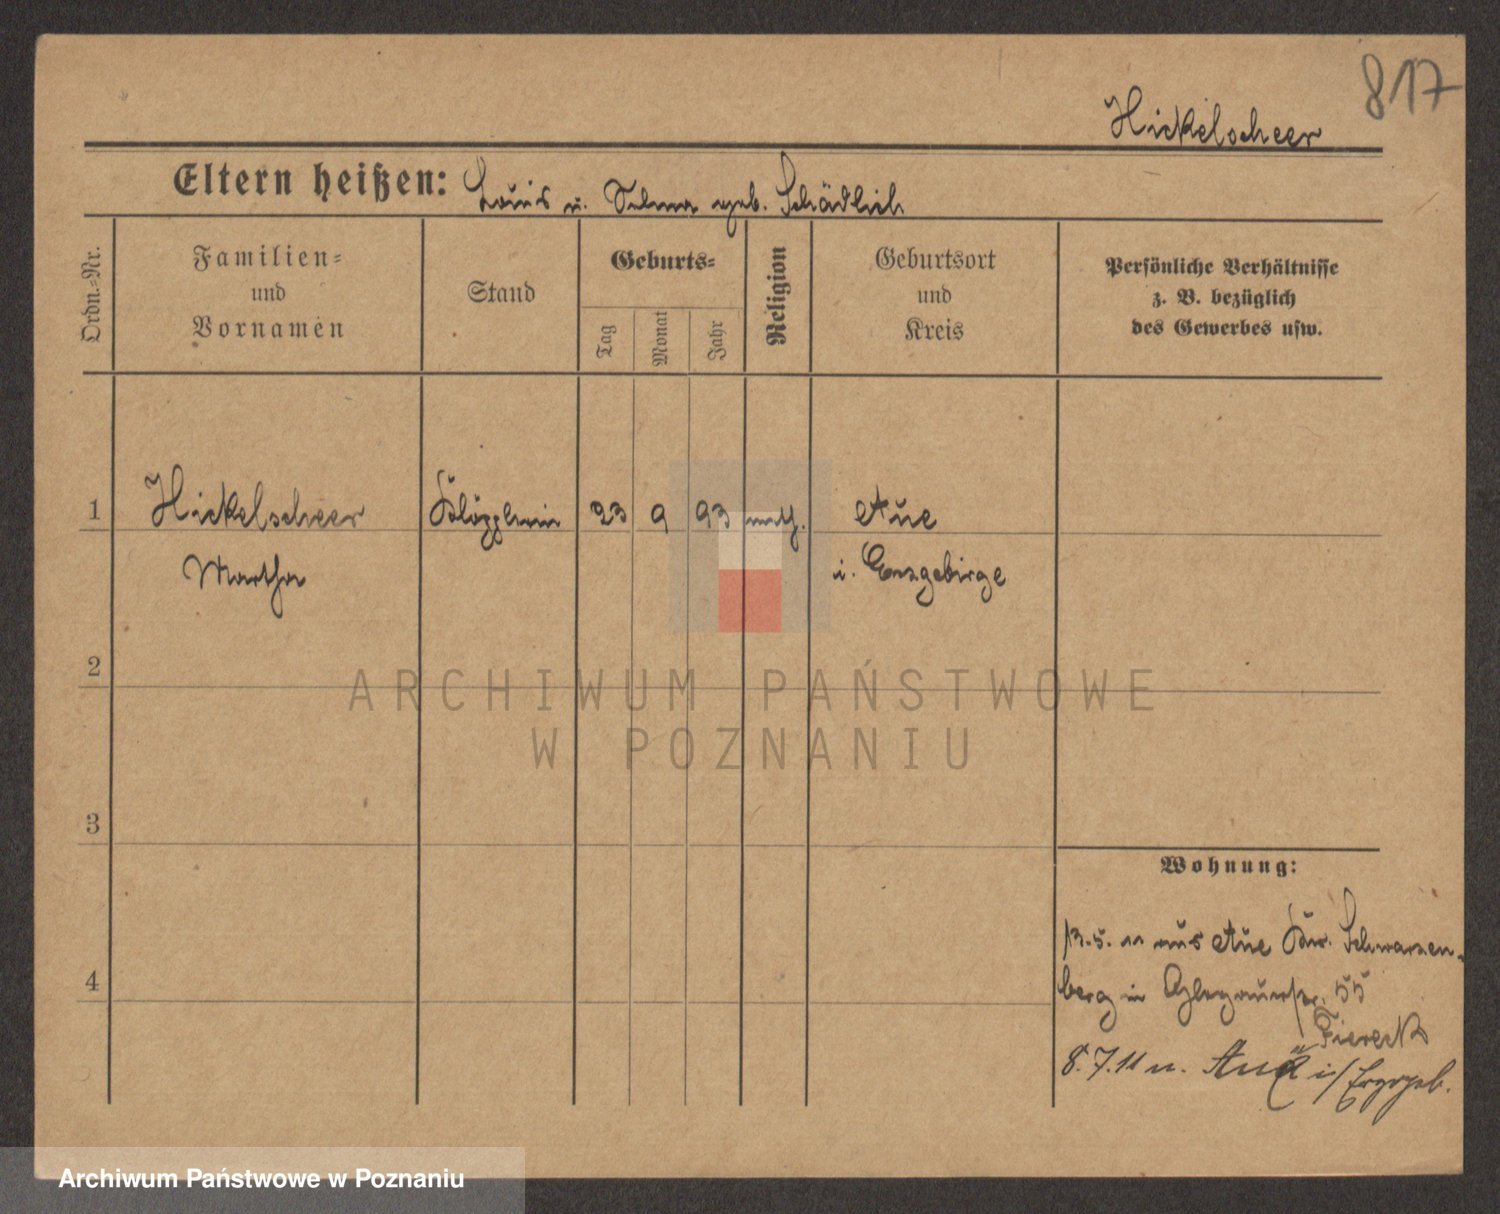 817
Hickelscheer
Eltern heißen: Louis u. Selma geb. Schädlich
Ordn.-Nr.
Familien-
und
Vornamen
Stand
Geburts-
Tag
Monat
Jahr
Religion
Geburtsort
und
Kreis
Persönliche Verhältnisse
z. B. bezüglich
des Gewerbes usw.
1 Hickelscheer Klöpplerin 23 9 93 Aue
Martha i. Erzgebirge
2
ARCHIWUM PAŃSTWOWE
W POZNANIU
3
Wohnung:
13.5.11 aus Aue Schwarzen-
berg in Glogauerstr. 55
4
Fiereck
8.7.11 n. Aue i/Erzgeb.
Archiwum Państwowe w Poznaniu